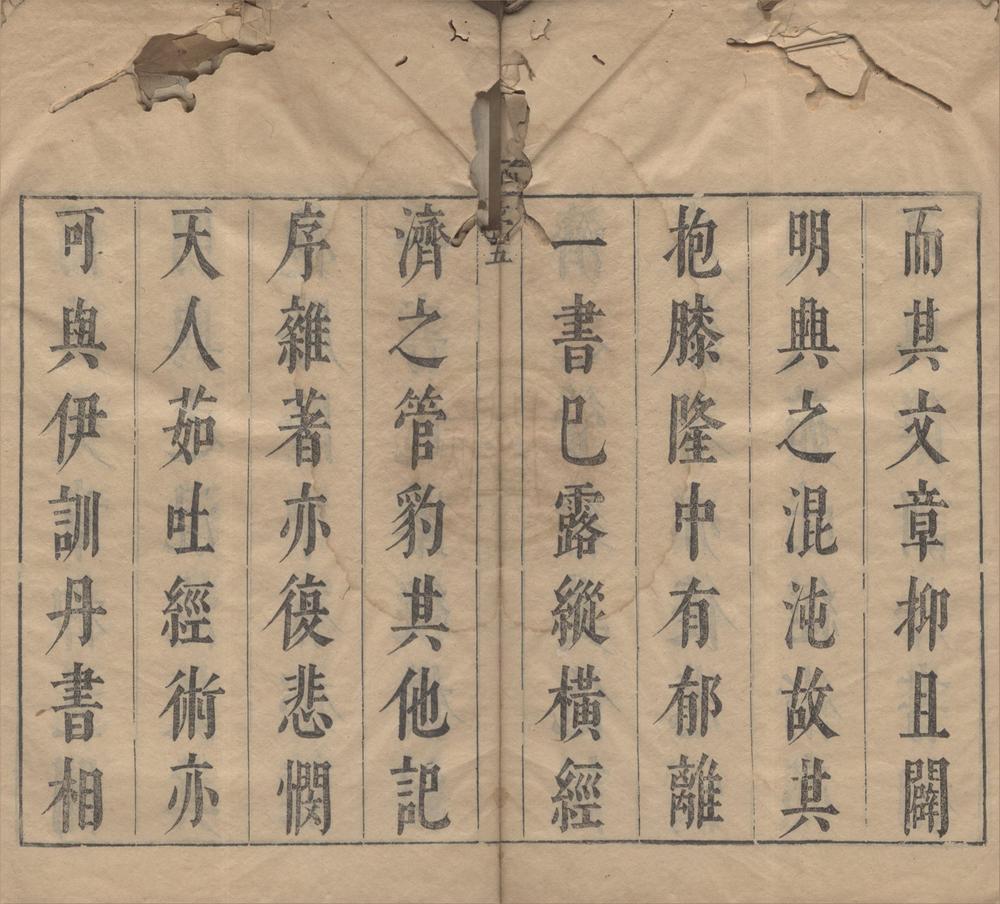 而其文章抑且闢
明興之混沌故其
抱膝隆中有郁離
一書已露縱橫經
五
濟之管豹其他記
序雜著亦復悲憫
天人茹吐經術亦
可與伊訓丹書相